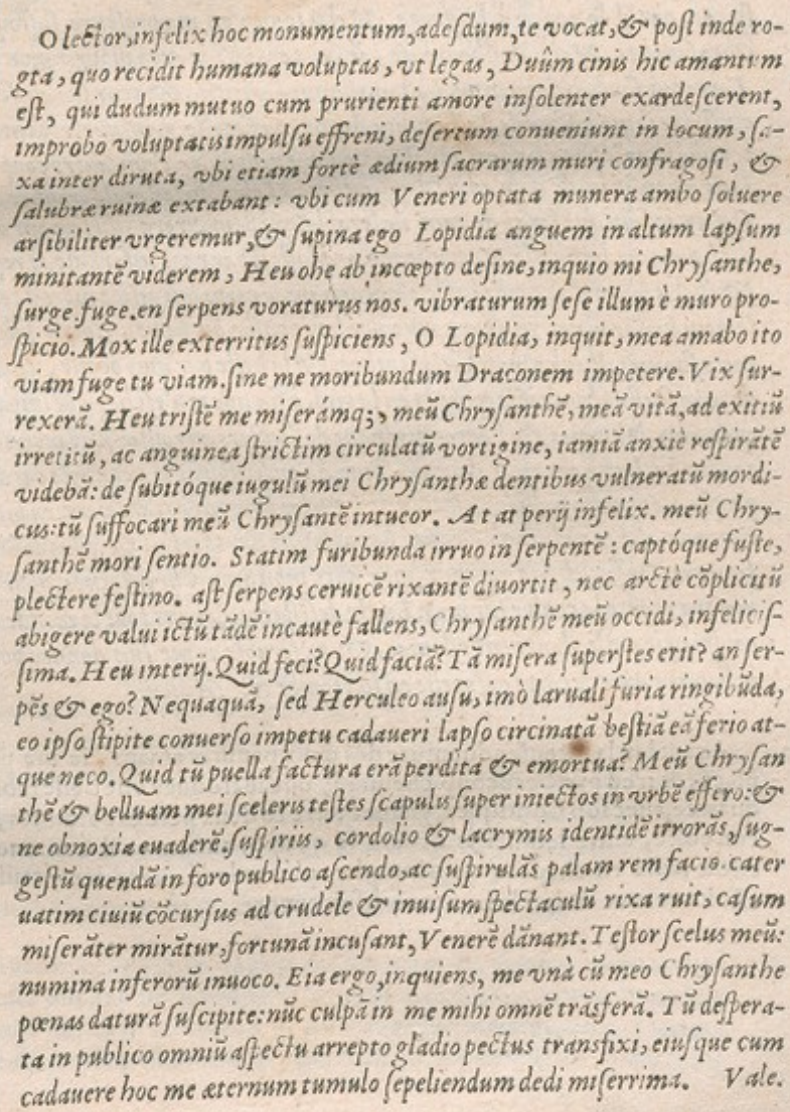 O lector, infelix hoc monumentum, adesdum, te vocat, & post inde ro-
gta, quo recidit humana voluptas, vt legas, Duûm cinis hic amantvm
est, qui dudum mutuo cum prurienti amore insolenter exardescerent,
improbo voluptatis impulsu effreni, desertum conueniunt in locum, sa-
xa inter diruta, vbi etiam fortè ædium sacrarum muri confragosi, &
salubræ ruinæ extabant: vbi cum Veneri optata munera ambo soluere
arsibiliter vrgeremur, & supina ego Lopidia anguem in altum lapsum
minitantẽ viderem, Heu ohe ab incœpto desine, inquio mi Chrysanthe,
surge fuge. en serpens voraturus nos. vibraturum sese illum è muro pro-
spicio. Mox ille exterritus suspiciens, O Lopidia, inquit, mea amabo ito
viam fuge tu viam. sine me moribundum Draconem impetere. Vix sur-
rexerã. Heu tristẽ me miserámq;, meũ Chrysanthẽ, meã vitã, ad exitiũ
irretitũ, ac anguinea strictim circulatũ vortigine, iamiã anxiè respirãtẽ
videbã: de subitóque iugulũ mei Chrysanthæ dentibus vulneratũ mordi-
cus: tũ suffocari meũ Chrysantẽ intueor. At at perij infelix. meũ Chry-
santhẽ mori sentio. Statim furibunda irruo in serpentẽ: captóque fuste,
plectere festino. ast serpens ceruicẽ rixantẽ diuortit, nec arctè cõplicitũ
abigere valui ictũ tãdẽ incautè fallens, Chrysanthẽ meũ occidi, infelicis-
sima. Heu interij. Quid feci? Quid faciã? Tã misera superstes erit? an ser-
pẽs & ego? Nequaquã, sed Herculeo ausu, imò laruali furia ringibũda,
eo ipso stipite conuerso impetu cadaueri lapso circinatã bestiã eã ferio at-
que neco. Quid tũ puella factura erã perdita & emortua? Meũ Chrysan
thẽ & belluam mei sceleris testes scapulis super iniectos in vrbẽ effero: &
ne obnoxia euaderẽ. suspiriis, cordolio & lacrymis identidẽ irrorãs, sug-
gestũ quendã in foro publico ascendo, ac suspirulãs palam rem facio. cater
uatim ciuiũ cõcursus ad crudele & inuisum spectaculũ rixa ruit, casum
miserãter mirãtur, fortunã incusant, Venerẽ dãnant. Testor scelus meũ:
numina inferorũ inuoco. Eia ergo, inquiens, me vnà cũ meo Chrysanthe
pœnas daturã suscipite: nũc culpã in me mihi omnẽ trãsferã. Tũ despera-
ta in publico omniũ aspectu arrepto gladio pectus transfixi, eiusque cum
cadauere hoc me æternum tumulo sepeliendum dedi miserrima. Vale.